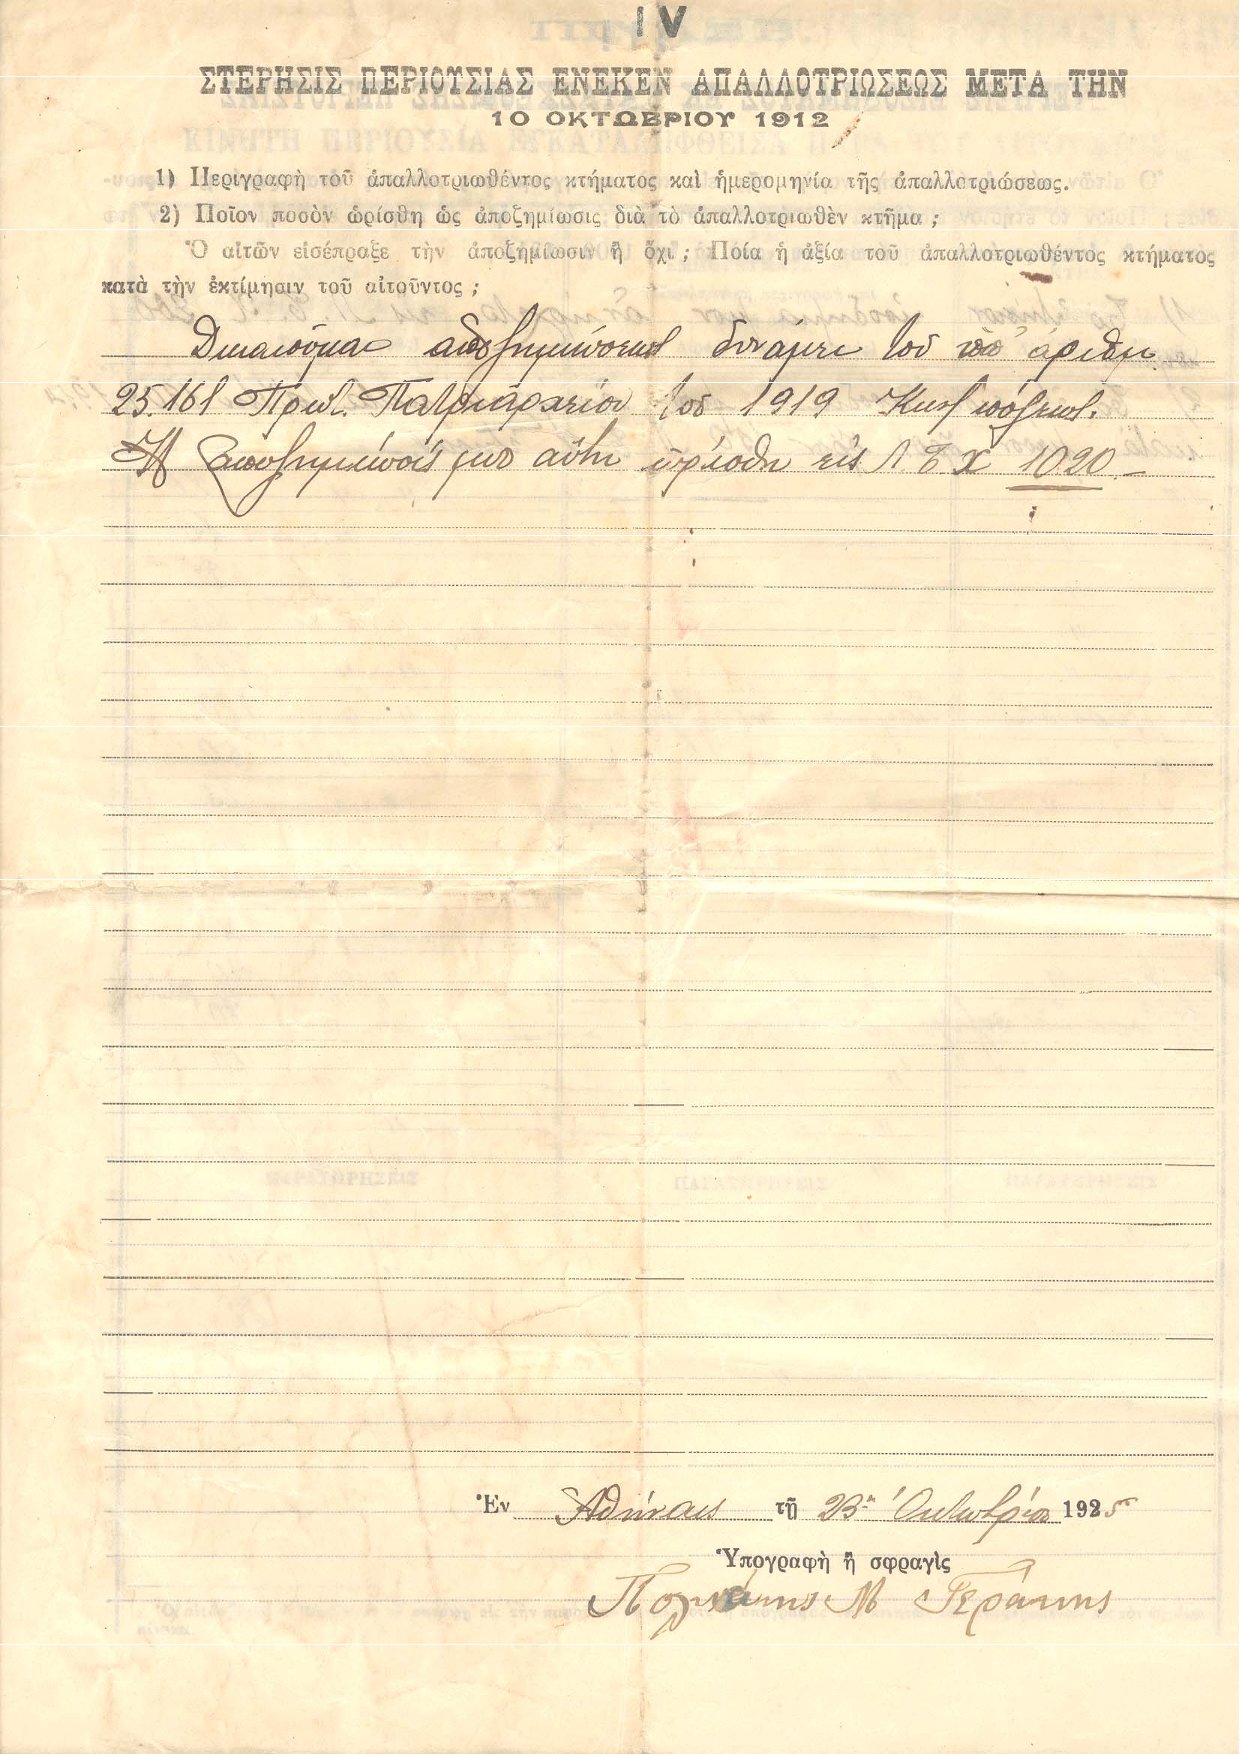 IV
ΣΤΕΡΗΣΙΣ ΠΕΡΙΟΥΣΙΑΣ ΕΝΕΚΕΝ ΑΠΑΛΛΟΤΡΙΩΣΕΩΣ ΜΕΤΑ ΤΗΝ
10 ΟΚΤΩΒΡΙΟΥ 1912
1) Περιγραφὴ τοῦ ἀπαλλοτριωθέντος κτήματος καὶ ἡμερομηνία τῆς ἀπαλλοτριώσεως.
2) Ποῖον ποσὸν ὡρίσθη ὡς ἀποζημίωσις διὰ τὸ ἀπαλλοτριωθὲν κτῆμα ;
Ὁ αἰτῶν εἰσέπραξε τὴν ἀποζημίωσιν ἢ ὄχι ; Ποία ἡ ἀξία τοῦ ἀπαλλοτριωθέντος κτήματος
κατὰ τὴν ἐκτίμησιν τοῦ αἰτοῦντος ;
Δικαίωμα ἀποζημιώσεως δυνάμει τοῦ ὑπ' ἀριθμ.
25.161 Πρωτ. Πατριαρχείου τοῦ 1919 Κων/πόλεως.
Ἡ ἀποζημίωσίς μου αὕτη ὡρίσθη εἰς Λ Τ Χ 1020 _
Ἐν Ἀθήναις τῇ 23ῃ Ὀκτωβρίου 1925
Ὑπογραφὴ ἢ σφραγὶς
Μ